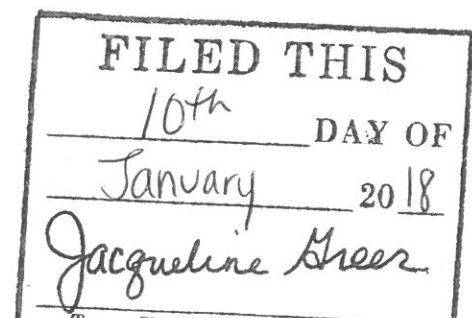 FILED THIS
10th DAY OF
January 20 18
Jacqueline Greer